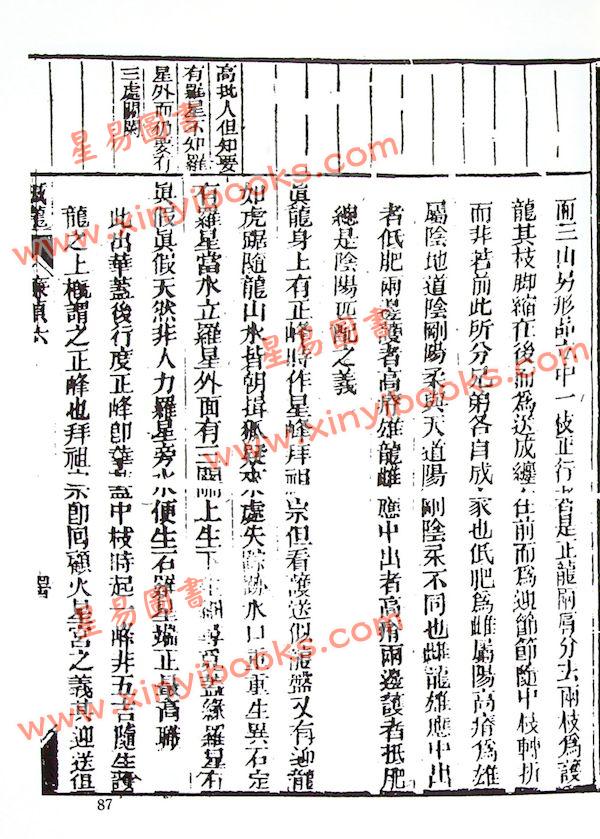 高批人但知要
有羅星不知羅
星外而仍要有
三處關
面三山另形品立中一枝正行者是正龍兩肩分去兩枝為護
龍其枝脚縮在後而為送成纏在前而為迎節節隨中枝轉折
而非若前此所分兄弟各自成家也低肥為雌屬陽高瘠為雄
屬陰地道陰剛陽柔與天道陽剛陰柔不同也雌龍雄應中出
者低肥兩邊護者高瘠雄龍雌應中出者高瘠兩邊護者抵肥
總是陰陽匹配之義
眞龍身上有正峰時作星峰拜祖宗但看護送似龍盤又有迎龍
如虎踞隨龍山水皆朝揖狐疑來處失踪跡水口重重生異石定
有羅星當水立羅星外面有三關上生下細尋看蓋緣羅星有
眞假眞假天然非人力羅星旁水便生石羅星端正最高職
此出華蓋後行度正峰即華蓋中枝時起一峰非五吉隨生護
龍之上概謂之正峰也拜祖宗即回顧火星宮之義其迎送俱
87
星易圖書
www.xinyibooks.com
星易圖書
www.xinyibooks.com
星易圖書
www.xinyibooks.com